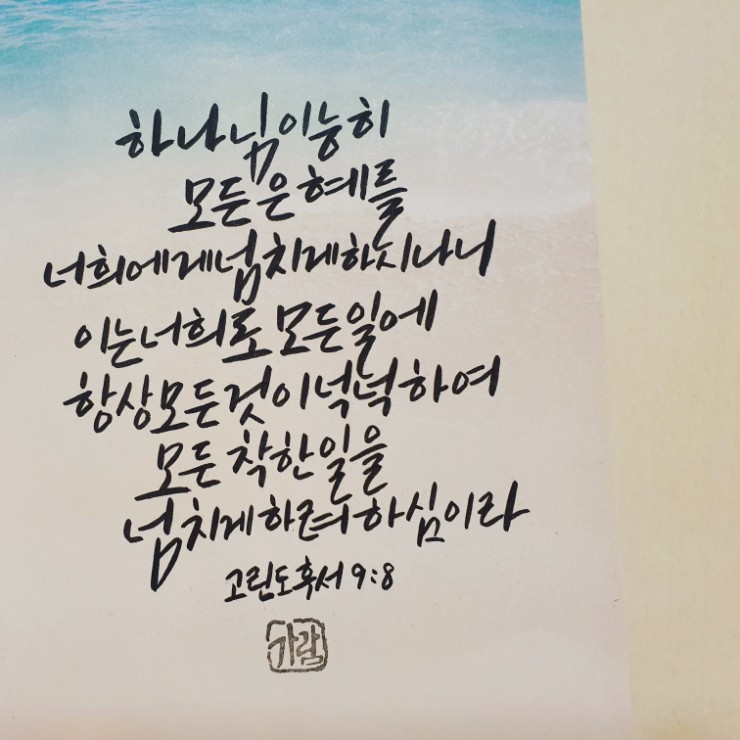 하나님이능히
모든은혜를
너희에게넘치게하시나니
이는너희로모든일에
항상모든것이넉넉하여
모든착한일을
넘치게하려하심이라
고린도후서 9:8
가람